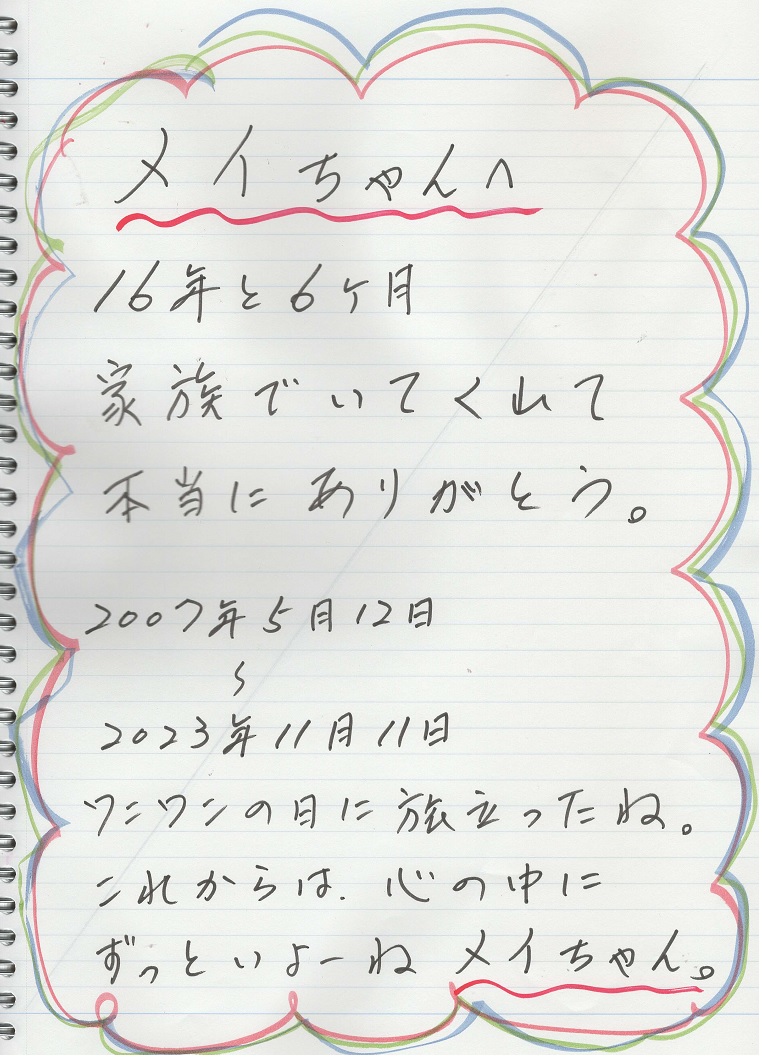 メイちゃんへ
16年と6ヶ月
家族でいてくれて
本当にありがとう。
2007年5月12日
〜
2023年11月11日
ワンワンの日に旅立ったね。
これからは、心の中に
ずっといよーね メイちゃん。